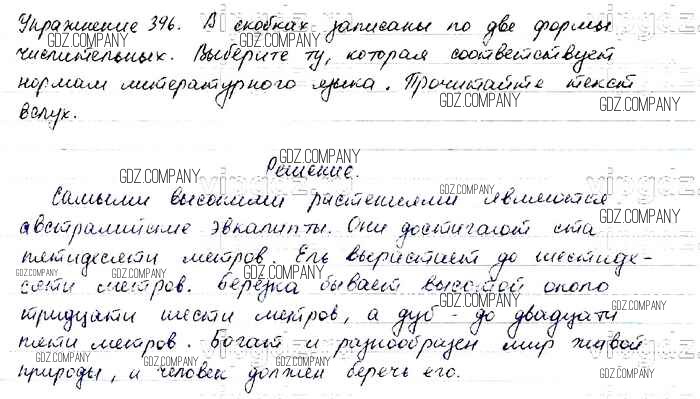 Упражнение 396. В скобках записаны по две формы
числительных. Выберите ту, которая соответствует
нормам литературного языка. Прочитайте текст
вслух.
Решение.
Самыми высокими растениями являются
австралийские эвкалипты. Они достигают ста
пятидесяти метров. Ель вырастает до шестиде-
сяти метров. Берёзка бывает высотой около
тридцати шести метров, а дуб - до двадцати
пяти метров. Богат и разнообразен мир живой
природы, и человек должен беречь его.
GDZ.COMPANY